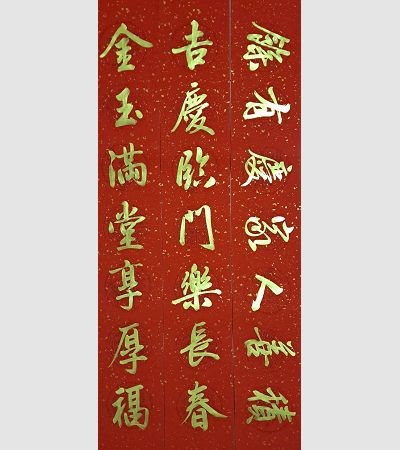 積善人家慶有餘
吉慶臨門樂長春
金玉滿堂享厚福